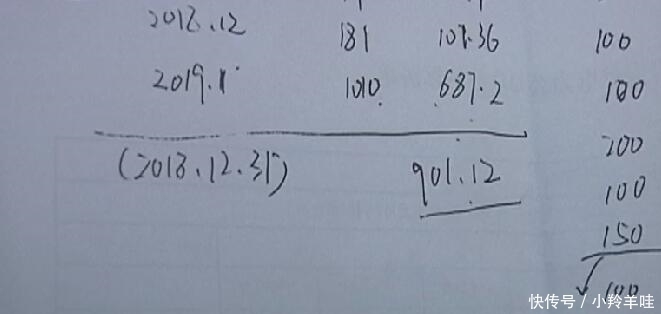 2018.12 181 101.36 100
2019.1 1010 687.2 100
200
(2018.12.31) 901.12
100
150
100
快传号 / 小羚羊哇